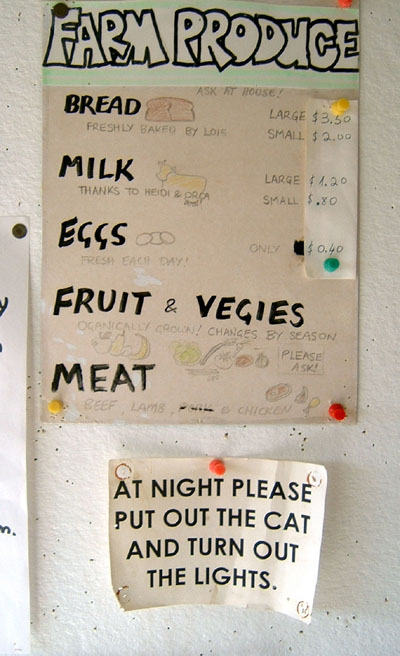 FARM PRODUCE
ASK AT HOUSE!
BREAD
LARGE $3.50
FRESHLY BAKED BY LOIS
SMALL $2.00
MILK
LARGE $1.20
THANKS TO HEIDI & ORCA
SMALL $.80
EGGS
ONLY $0.40
FRESH EACH DAY!
FRUIT & VEGIES
OGANICALLY GROWN! CHANGES BY SEASON
PLEASE
ASK!
MEAT
BEEF, LAMB, PORK & CHICKEN
AT NIGHT PLEASE
PUT OUT THE CAT
AND TURN OUT
THE LIGHTS.